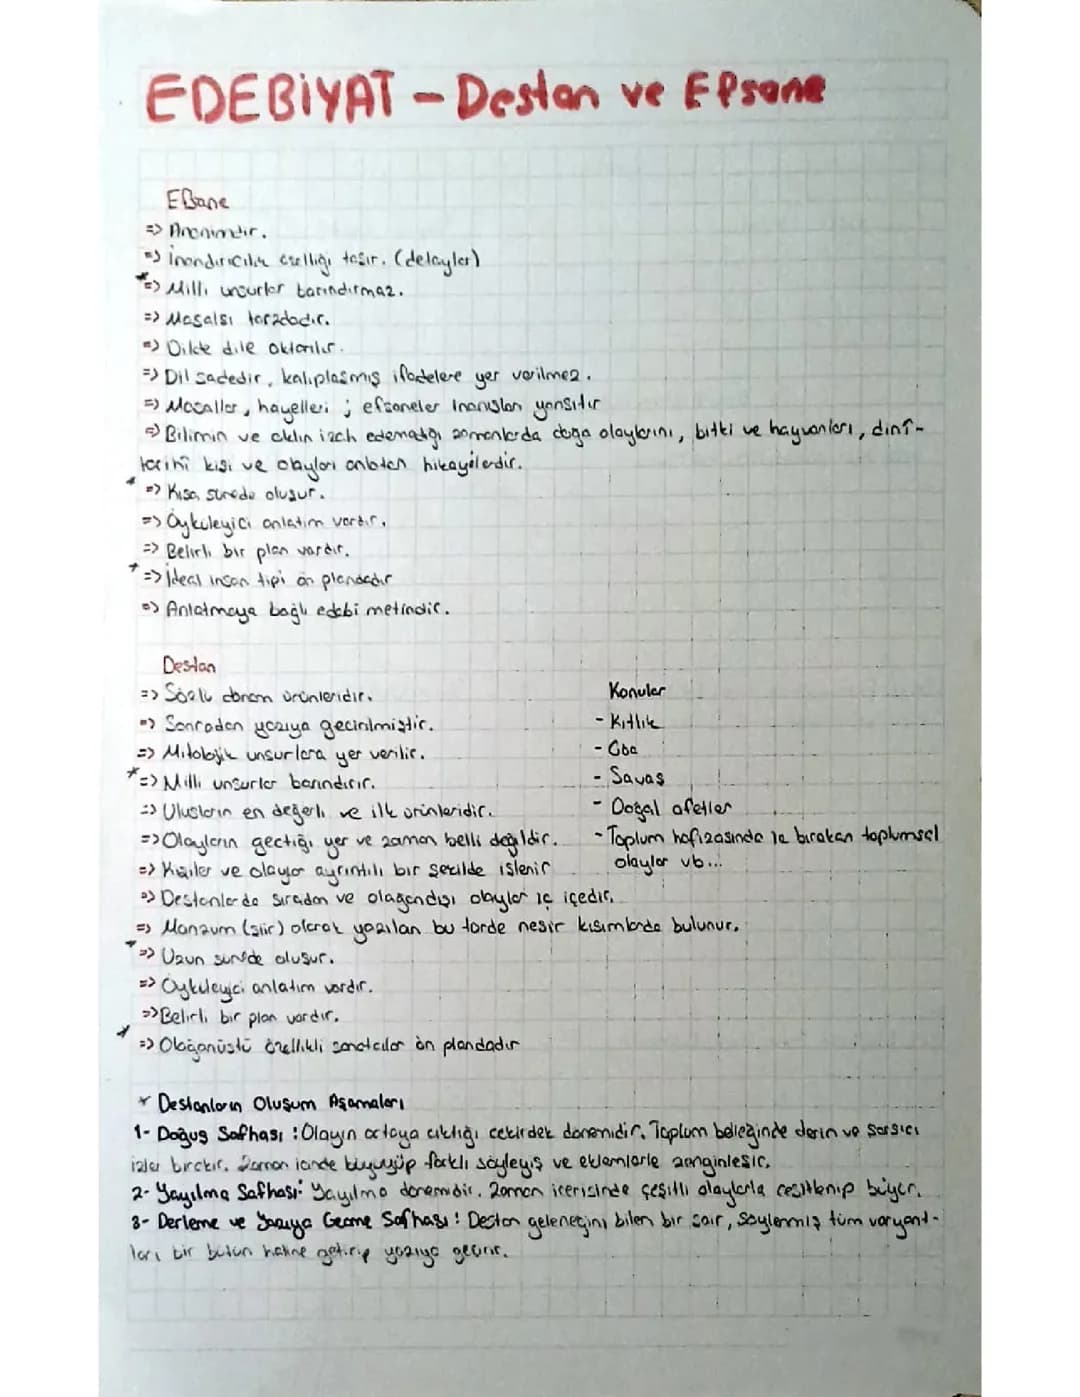 EDEBİYAT - Destan ve Efsane
Efsane
=> Anonimdir.
=> İnandırıcılık özelliği taşır. (delaylar)
*=> Milli unsurlar barındırmaz.
=> Masalsı tarzdadır.
=> Dilde dile aktarılır.
=> Dil sadedir, kalıplaşmış ifadelere yer verilmez.
=> Masallar, hayelleri ; efsaneler inanışları yansıtır
=> Bilimin ve aklın izah edemadığı zamanlarda doğa olaylarını, bitki ve hayvanları, dinî-
tarihî kişi ve olayları anlatan hikayelerdir.
* => Kısa sürede oluşur.
=> Öyküleyici anlatım vardır.
=> Belirli bir plan vardır.
* => İdeal insan tipi ön plandadır
=> Anlatmaya bağlı edebi metindir.
Destan
=> Sözlü dönem ürünleridir.
=> Sonradan yazıya geçirilmiştir.
=> Mitolojik unsurlara yer verilir.
*=> Milli unsurlar barındırır.
=> Ulusların en değerli ve ilk ürünleridir.
=> Olayların geçtiği yer ve zaman belli değildir.
=> Kişiler ve olaylar ayrıntılı bir şekilde işlenir
=> Destanlarda sıradan ve olağandışı olaylar iç içedir.
=> Manzum (şiir) olarak yazılan bu türde nesir kısımlarda bulunur.
* => Uzun sürede oluşur.
=> Öyküleyici anlatım vardır.
=> Belirli bir plan vardır.
* => Olağanüstü özellikli sanatcılar ön plandadır
Konular
- Kıtlık
- Göç
- Savaş
- Doğal afetler
- Toplum hafızasında iz bırakan toplumsal
olaylar vb...
* Destanların Oluşum Aşamaları
1- Doğuş Safhası : Olayın ortaya çıktığı çekirdek dönemidir. Toplum belleğinde derin ve sarsıcı
izler bırakır. Zaman içinde büyüyüp farklı söyleyiş ve eklemlerle zenginleşir.
2- Yayılma Safhası: Yayılma dönemidir. Zaman içerisinde çeşitli olaylarla çeşitlenip büyür.
3- Derleme ve Yazıya Geçme Safhası : Destan geleneğini bilen bir şair, söylenmiş tüm varyant-
ları bir bütün haline getirip yazıya geçirir.